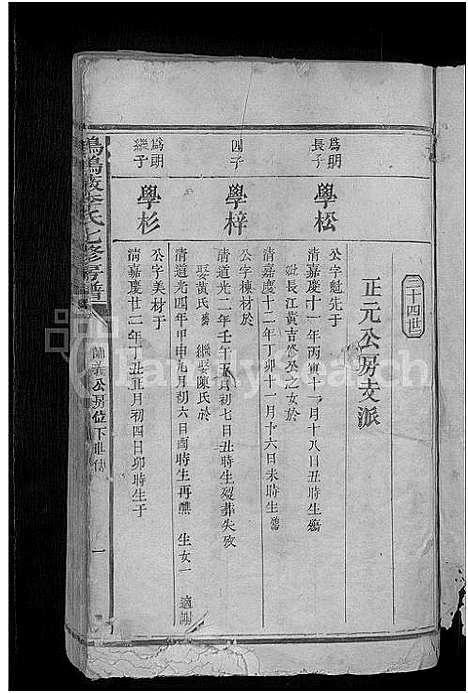 三十四世
正元公房支派
爲明長子
學松
公字魁先于
清嘉慶十一年丙寅十一月十八日丑時生
妣長江黃吉修公之女於
清嘉慶十二年丁卯十一月十六日未時生
四子
學梓
公字棟材於
清道光二年壬午五月初七日丑時生娶葬失攷
娶黃氏 繼娶陳氏於
清道光四年甲申九月初六日酉時生再醮 生女一 適謝
爲明繼子
學杉
公字美材于
清嘉慶廿二年丁丑五月初四日卯時生于
李氏七修房譜
公房位下世傳
一